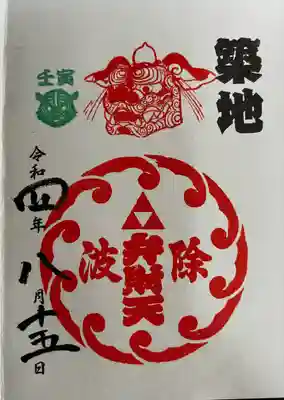 築地
壬寅
波除
弁財天
令和四年八月十五日